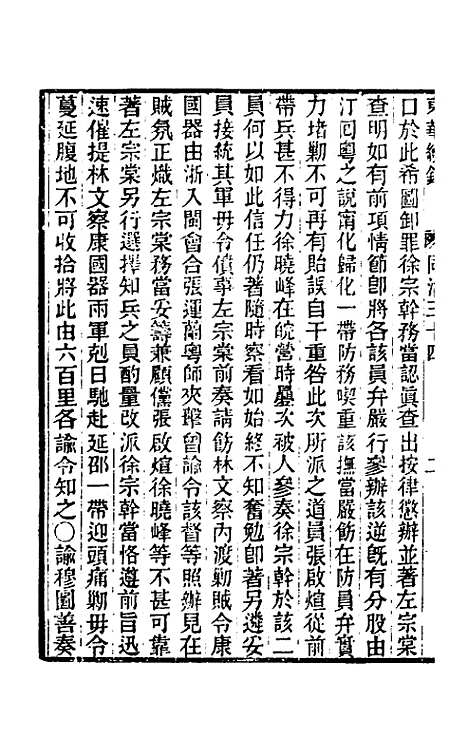 東華續錄 同治三十四 二
口於此希圖卸罪徐宗幹務當認眞查出按律懲辦並著左宗棠
查明如有前項情節卽將各該員弁嚴行參辦該逆旣有分股由
汀回粵之說甯化歸化一帶防務喫重該撫當嚴飭在防員弁實
力堵勦不可再有貽誤自干重咎此次所派之道員張啟煊從前
帶兵甚不得力徐曉峰在皖營時屢次被人參奏徐宗幹於該二
員何以如此信任仍著隨時察看如始終不知奮勉卽著另遴妥
員接統其軍毋令僨事左宗棠前奏請飭林文察內渡勦賊令康
國器由浙入閩會合張運蘭粵師夾擊曾諭令該督等照辦見在
賊氛正熾左宗棠務當妥籌兼顧儻張啟煊徐曉峰等不甚可靠
著左宗棠另行選擇知兵之員酌量改派徐宗幹當恪遵前旨迅
速催提林文察康國器兩軍剋日馳赴延邵一帶迎頭痛勦毋令
蔓延腹地不可收拾將此由六百里各諭令知之○諭穆圖善奏